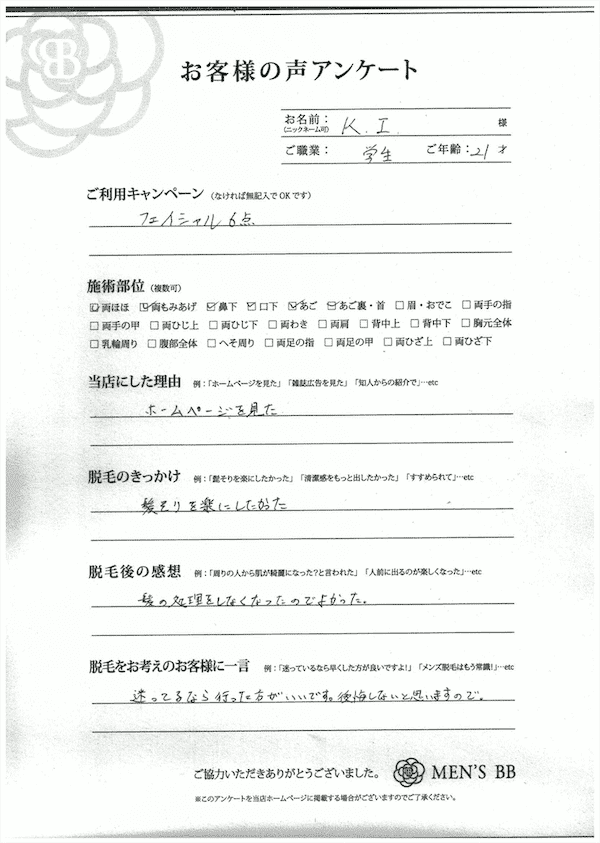 BB
お客様の声アンケート
お名前: K.I. 様
(ニックネーム可)
ご職業: 学生 ご年齢: 21 才
ご利用キャンペーン (なければ無記入でOKです)
フェイシャル6点
施術部位 (複数可)
☑両ほほ ☑両もみあげ ☑鼻下 ☑口下 ☑あご ☑あご裏・首 □眉・おでこ □両手の指
□両手の甲 □両ひじ上 □両ひじ下 □両わき □両肩 □背中上 □背中下 □胸元全体
□乳輪周り □腹部全体 □へそ周り □両足の指 □両足の甲 □両ひざ上 □両ひざ下
当店にした理由 例:「ホームページを見た」「雑誌広告を見た」「知人からの紹介で」…etc
ホームページを見た
脱毛のきっかけ 例:「髭そりを楽にしたかった」「清潔感をもっと出したかった」「すすめられて」…etc
髪そりを楽にしたかった
脱毛後の感想 例:「周りの人から肌が綺麗になった?と言われた」「人前に出るのが楽しくなった」…etc
髪の処理をしなくなったのでよかった。
脱毛をお考えのお客様に一言 例:「迷っているなら早くした方が良いですよ!」「メンズ脱毛はもう常識!」…etc
迷ってるなら行った方がいいです。後悔しないと思いますので。
ご協力いただきありがとうございました。 MEN'S BB
※このアンケートを当店ホームページに掲載する場合がございますのでご了承ください。